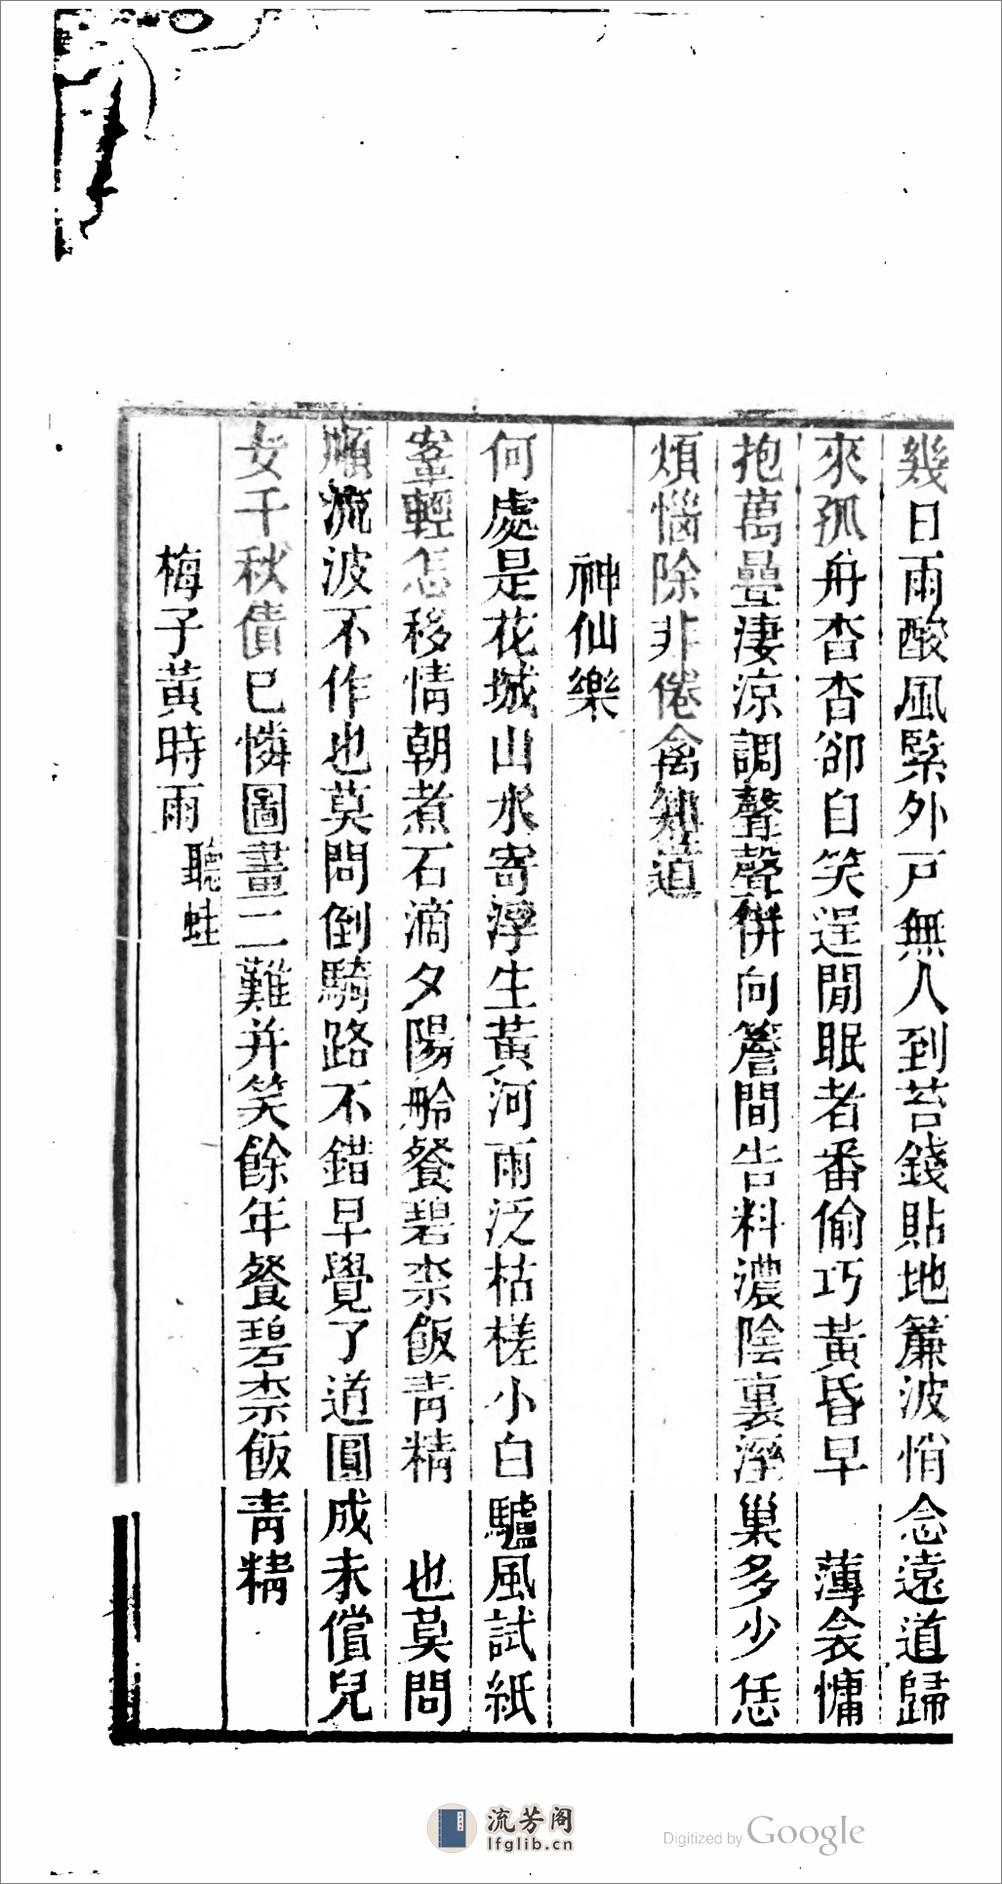 幾日雨酸風緊外戸無人到苔錢貼地簾波悄念遠道歸
來孤舟杳杳卻自笑逞閒眠者番偷巧黃昏早　薄衾慵
抱萬疊淒涼調聲聲併向簷間告料濃陰裏溼巢多少恁
煩惱除非倦禽知道
神仙樂
何處是花城山水寄浮生黃河雨泛枯槎小白驢風試紙
鞌輕怎移情朝煮石滴夕陽舲餐碧柰飯青精　也莫問
順流波不作也莫問倒騎路不錯早覺了道圓成未償兒
女千秋債已憐圖畫二難并笑餘年餐碧柰飯青精
梅子黃時雨 聽蛙
流芳阁
lfglib.cn
Digitized by Google